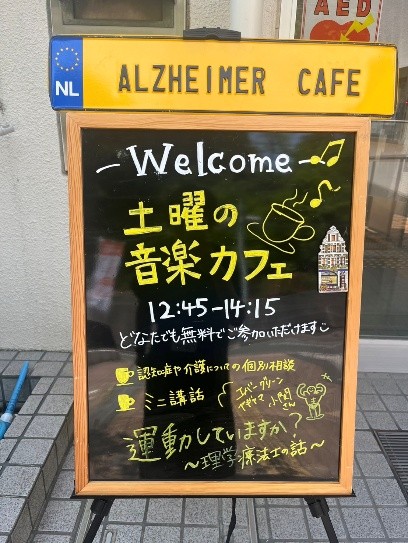 AED
NL ALZHEIMER CAFE
-Welcome-
土曜の
音楽カフェ
12:45-14:15
どなたでも無料でご参加いただけます
認知症や介護についての個別相談
ミニ講話
エバーグリーン
さん
運動していますか?
~理学療法士の話~